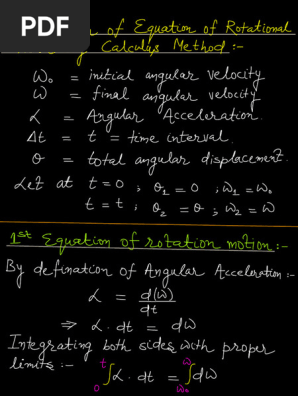 PDF
of Equation of Rotational
Calculus Method :-
ω₀ = initial angular velocity
ω = final angular velocity
α = Angular Acceleration.
Δt = t = time interval.
θ = total angular displacement.
Let at t = 0 ; θ₁ = 0 ; ω₁ = ω₀
t = t ; θ₂ = θ ; ω₂ = ω
1st Equation of rotation motion :-
By defination of Angular Acceleration :-
α = d(ω)/dt
⇒ α · dt = dω
Integrating both sides with proper
limits :- ₀∫ᵗ α · dt = ω₀∫ω dω